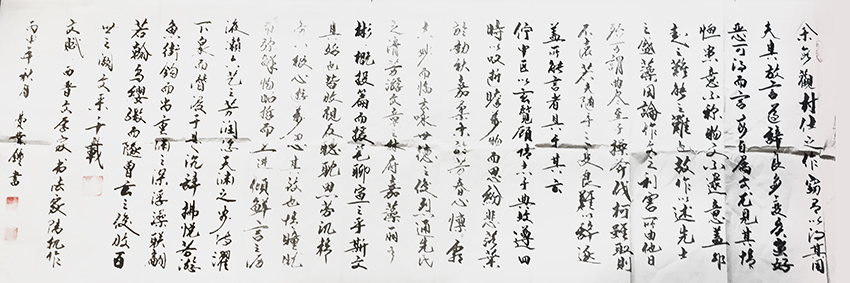 余每觀材仕之作竊有以得其用
夫其放言遣辭良多變矣妍
惡可得而言每自屬文尤見其情
恒患意不稱物文不逮意蓋非
知之難能之難也故作以述先士
之盛藻因論作文之利害所由他日
殆可謂曲盡至于操斧伐柯雖取則
不遠若夫隨手之變良難以辭逐
蓋所能言者具于其云
佇中區以玄覽頤情志于典墳遵四
時以嘆逝瞻萬物而思紛悲落葉
於勁秋嘉柔條于芳春心懍
而 詠世德之駿烈誦先民
之清芬游文章之林府嘉藻麗之
彬 慨投篇而援筆聊宣之乎斯文
其始也皆收視反聽耽思旁訊精
八極心游萬仞其致也情曈曨
而彌鮮物昭晰而互進傾群言之瀝
液漱六藝之芳潤浮天淵之安流濯
下泉而潛浸于是沉辭怫悅若游
魚銜鉤而出重淵之深浮藻聯翩
若翰鳥纓繳而墜層雲之峻收百
世之闕文采千載
文賦 西晉文學家書法家陸機作
丙申年秋月 書